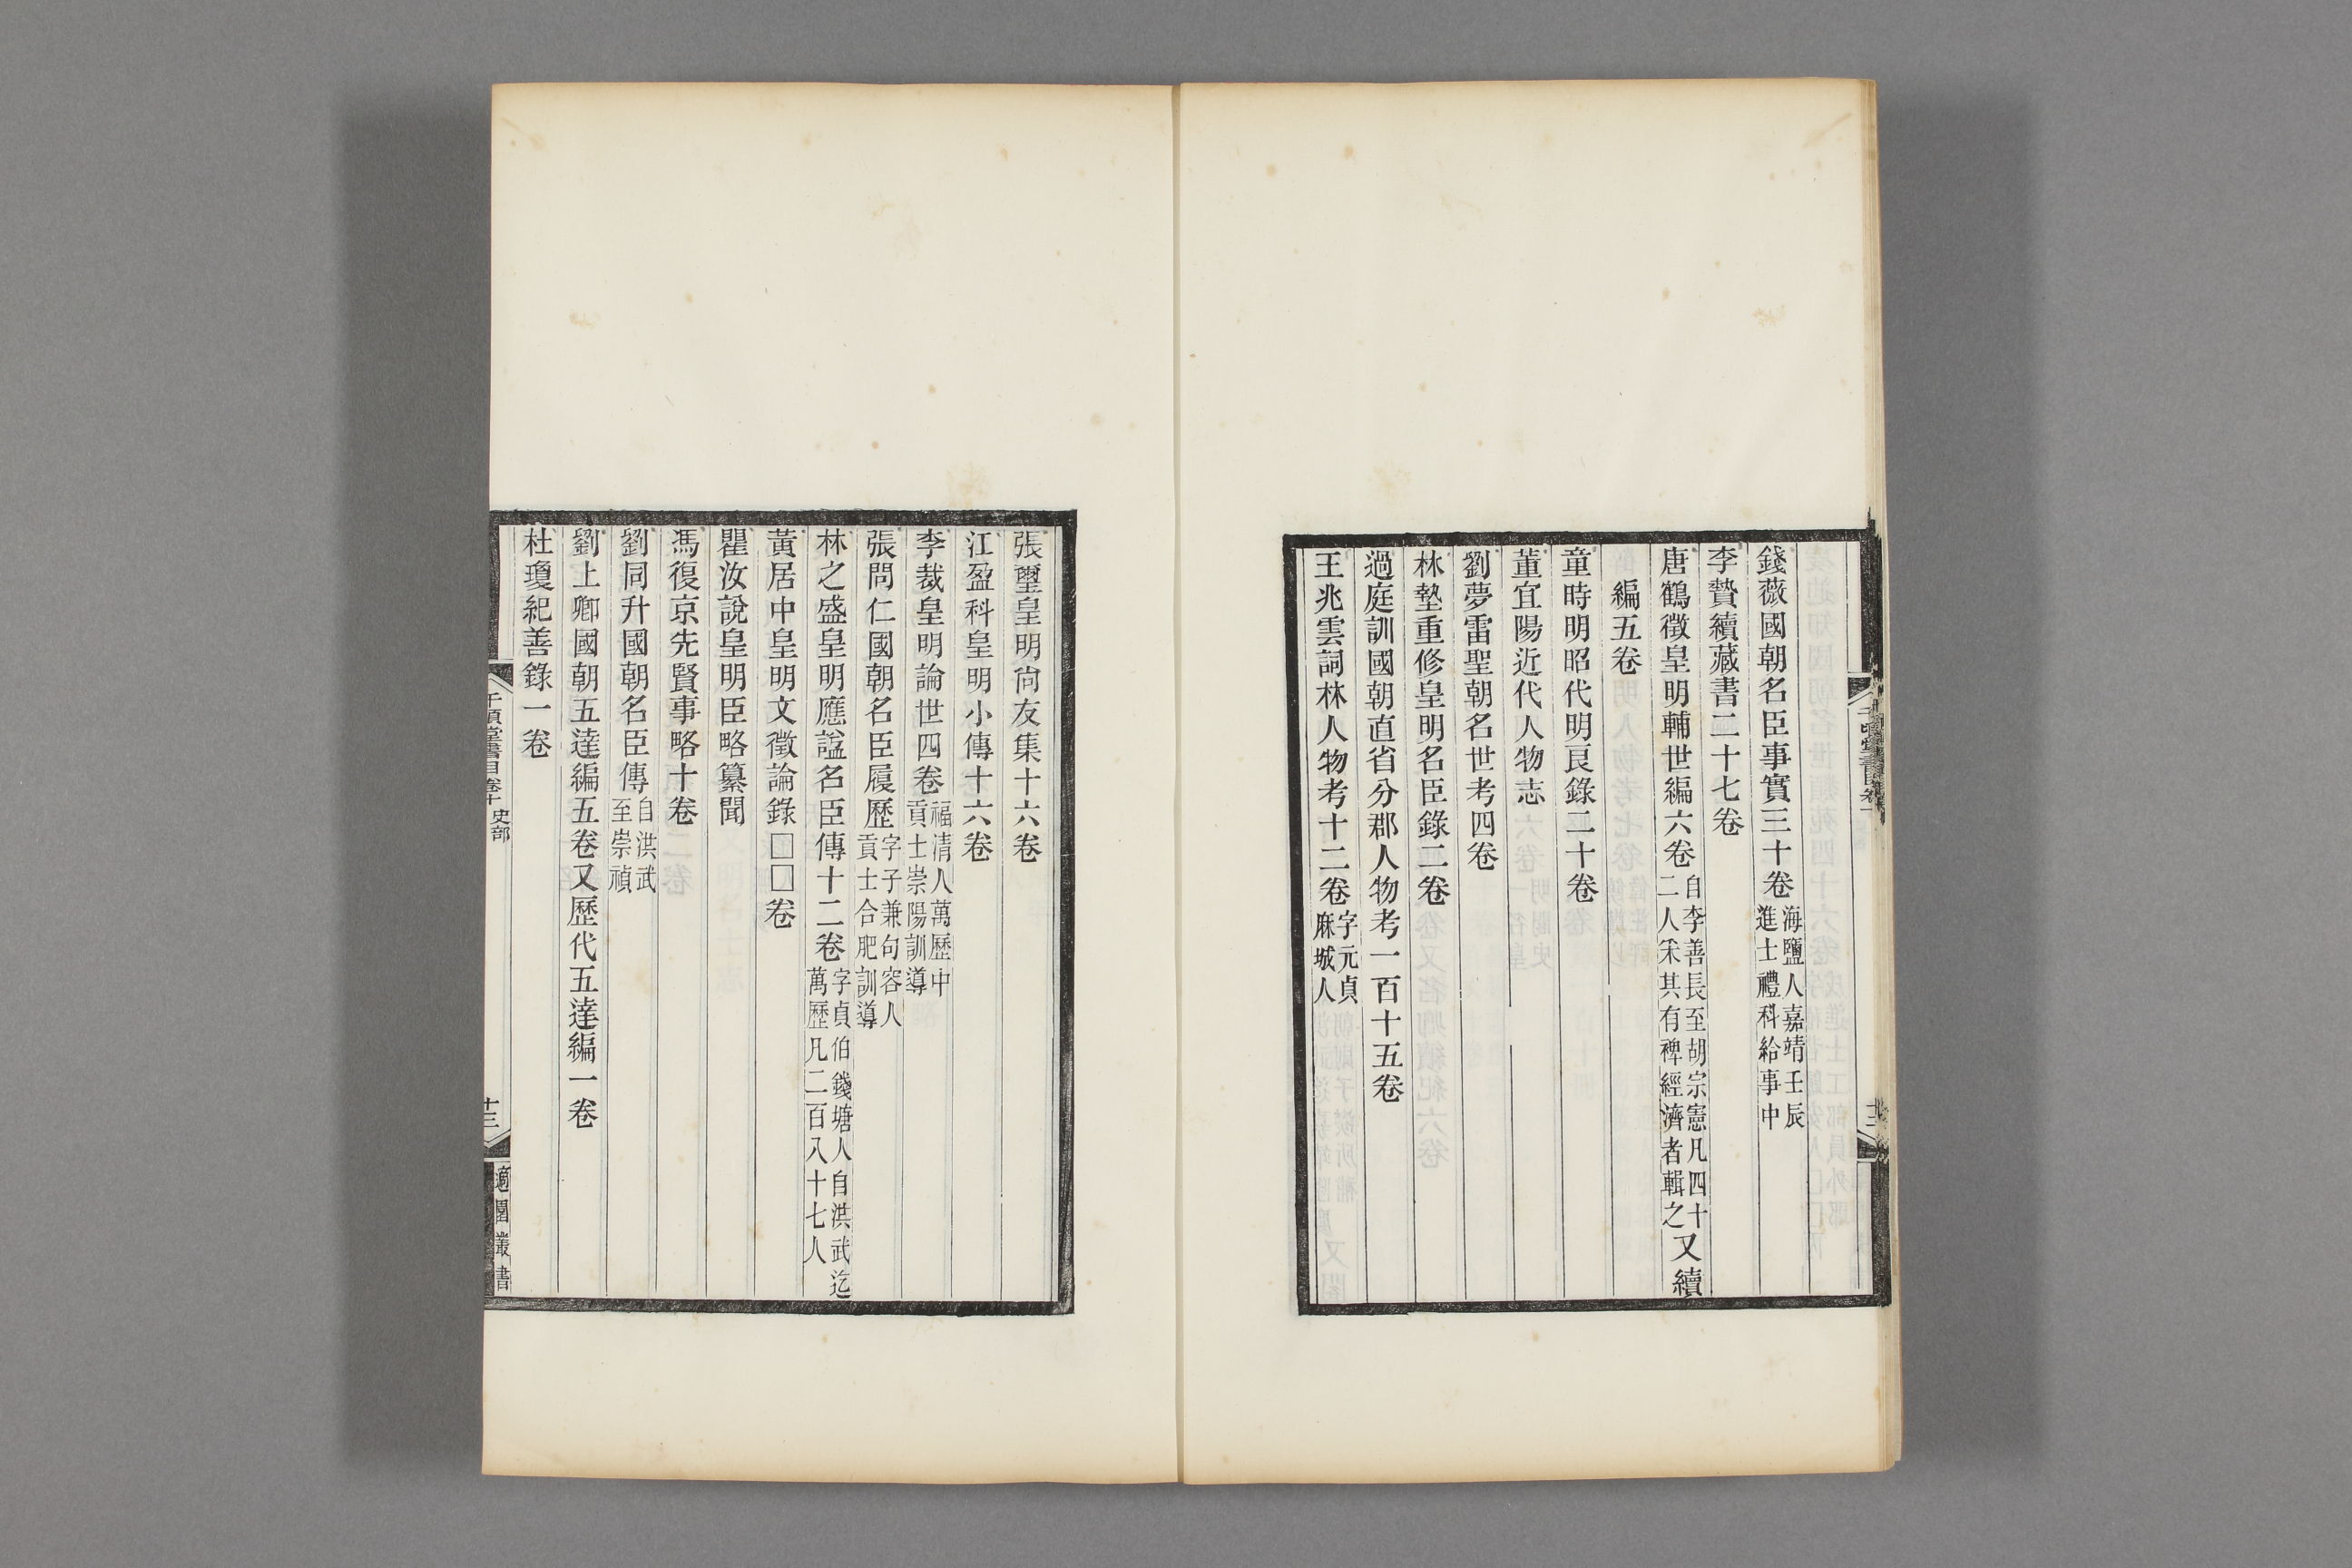 錢薇國朝名臣事實三十卷海鹽人嘉靖壬辰進士禮科給事中
李贄續藏書二十七卷
唐鶴徵皇明輔世編六卷自李善長至胡宗憲凡四十二人釆其有裨經濟者輯之又續
編五卷
童時明昭代明良錄二十卷
董宜陽近代人物志
劉夢雷聖朝名世考四卷
林塾重修皇明名臣錄二卷
過庭訓國朝直省分郡人物考一百十五卷
王兆雲詞林人物考十二卷字元貞麻城人
張璽皇明尙友集十六卷
江盈科皇明小傳十六卷
李裁皇明論世四卷福清人萬歷中貢士崇陽訓導
張問仁國朝名臣履歷字子兼句容人貢士合肥訓導
林之盛皇明應諡名臣傳十二卷字貞伯錢塘人自洪武迄萬歷凡二百八十七人
黃居中皇明文徵論錄□□卷
瞿汝說皇明臣略纂聞
馮復京先賢事略十卷
劉同升國朝名臣傳自洪武至崇禎
劉上卿國朝五達編五卷又歷代五達編一卷
杜瓊紀善錄一卷
千頃堂書目卷十 史部
十三
適園叢書